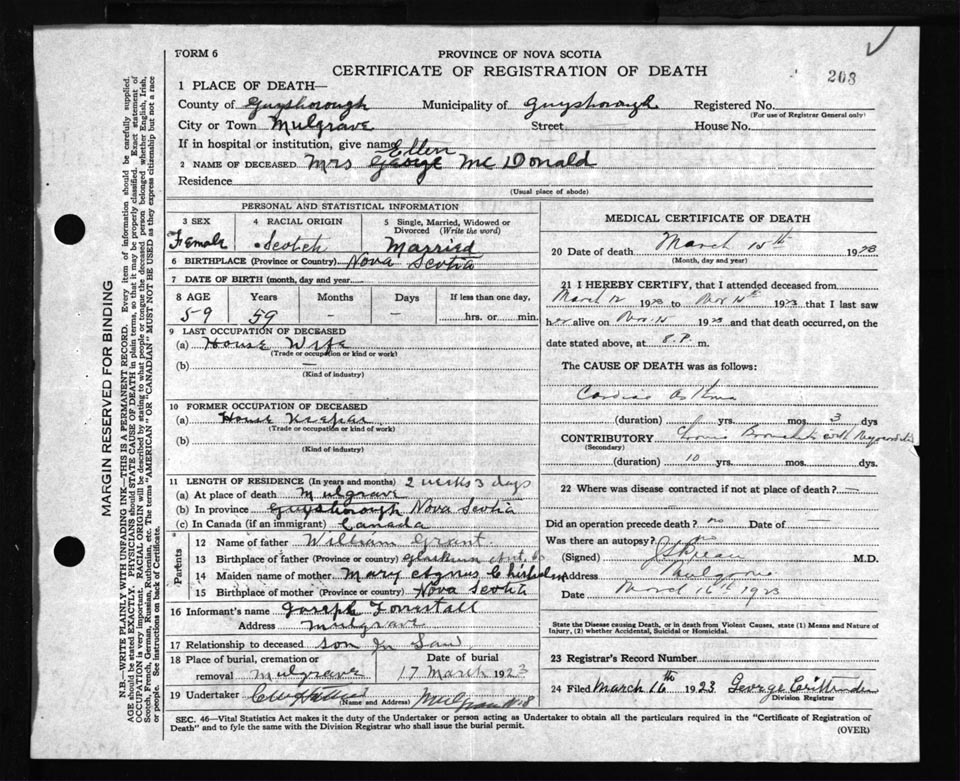 FORM 6
PROVINCE OF NOVA SCOTIA
CERTIFICATE OF REGISTRATION OF DEATH
208
1 PLACE OF DEATH—
County of Guysborough Municipality of Guysborough Registered No.
(For use of Registrar General only)
City or Town Mulgrave Street House No.
If in hospital or institution, give name
Ellen
2 NAME OF DECEASED Mrs George McDonald
Residence
(Usual place of abode)
PERSONAL AND STATISTICAL INFORMATION
3 SEX Female
4 RACIAL ORIGIN Scotch
5 Single, Married, Widowed or Divorced (Write the word) Married
6 BIRTHPLACE (Province or Country) Nova Scotia
7 DATE OF BIRTH (month, day and year)
8 AGE Years Months Days If less than one day,
59 59 – – hrs. or min.
9 LAST OCCUPATION OF DECEASED
(a) House Wife
(Trade or occupation or kind or work)
(b) —
(Kind of industry)
10 FORMER OCCUPATION OF DECEASED
(a) House Keeper
(Trade or occupation or kind of work)
(b)
(Kind of industry)
11 LENGTH OF RESIDENCE (In years and months) 2 weeks 3 days
(a) At place of death Mulgrave
(b) In province Guysborough Nova Scotia
(c) In Canada (if an immigrant) Canada
Parents
12 Name of father William Grant
13 Birthplace of father (Province or country)
14 Maiden name of mother Mary Agnus Chisholm
15 Birthplace of mother (Province or country) Nova Scotia
16 Informant's name Joseph Forrestall
Address Mulgrave
17 Relationship to deceased son In Law
18 Place of burial, cremation or removal Mulgrave
Date of burial 17 March 1923
19 Undertaker
(Name and Address)
MEDICAL CERTIFICATE OF DEATH
20 Date of death March 15th 1923
(Month, day and year)
21 I HEREBY CERTIFY, that I attended deceased from
March 12 1923 to 1923 that I last saw
her alive on 1923 and that death occurred, on the
date stated above, at 8.P. m.
The CAUSE OF DEATH was as follows:
Cardiac Asthma
(duration) yrs. mos. 3 dys.
CONTRIBUTORY Chronic Bronchitis with Myocarditis
(Secondary)
(duration) 10 yrs. mos. dys.
22 Where was disease contracted if not at place of death? —
Did an operation precede death? no Date of —
Was there an autopsy? no
(Signed) M.D.
Address Mulgrave
Date March 16th 1923
State the Disease causing Death, or in death from Violent Causes, state (1) Means and Nature of
Injury, (2) whether Accidental, Suicidal or Homicidal.
23 Registrar's Record Number
24 Filed March 16th 1923 George Crittenden
Division Registrar
SEC. 46—Vital Statistics Act makes it the duty of the Undertaker or person acting as Undertaker to obtain all the particulars required in the "Certificate of Registration of
Death" and to fyle the same with the Division Registrar who shall issue the burial permit.
(OVER)
MARGIN RESERVED FOR BINDING
N.B.—WRITE PLAINLY WITH UNFADING INK—THIS IS A PERMANENT RECORD. Every item of information should be carefully supplied.
AGE should be stated EXACTLY. PHYSICIANS should STATE CAUSE OF DEATH in plain terms, so that it may be properly classified. Exact statement of
OCCUPATION is very important. RACIAL ORIGIN will be described by stating to what people or tongue the deceased person belonged whether English, Irish,
Scotch, French, German, Russian, Ruthenian, etc. The terms "AMERICAN" OR "CANADIAN" MUST NOT BE USED as they express citizenship but not a race
or people. See instructions on back of Certificate.